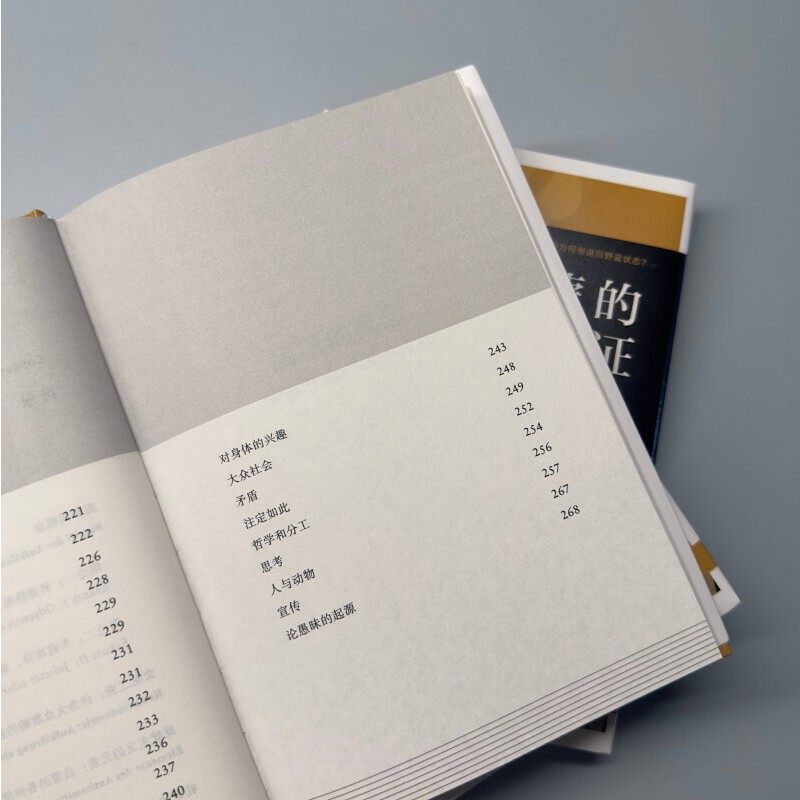 221
222
226
228
229
229
231
231
232
233
236
237
240
对身体的兴趣 243
大众社会 248
矛盾 249
注定如此 252
哲学和分工 254
思考 256
人与动物 257
宣传 267
论愚昧的起源 268
为何倒退回野蛮状态？
的
证